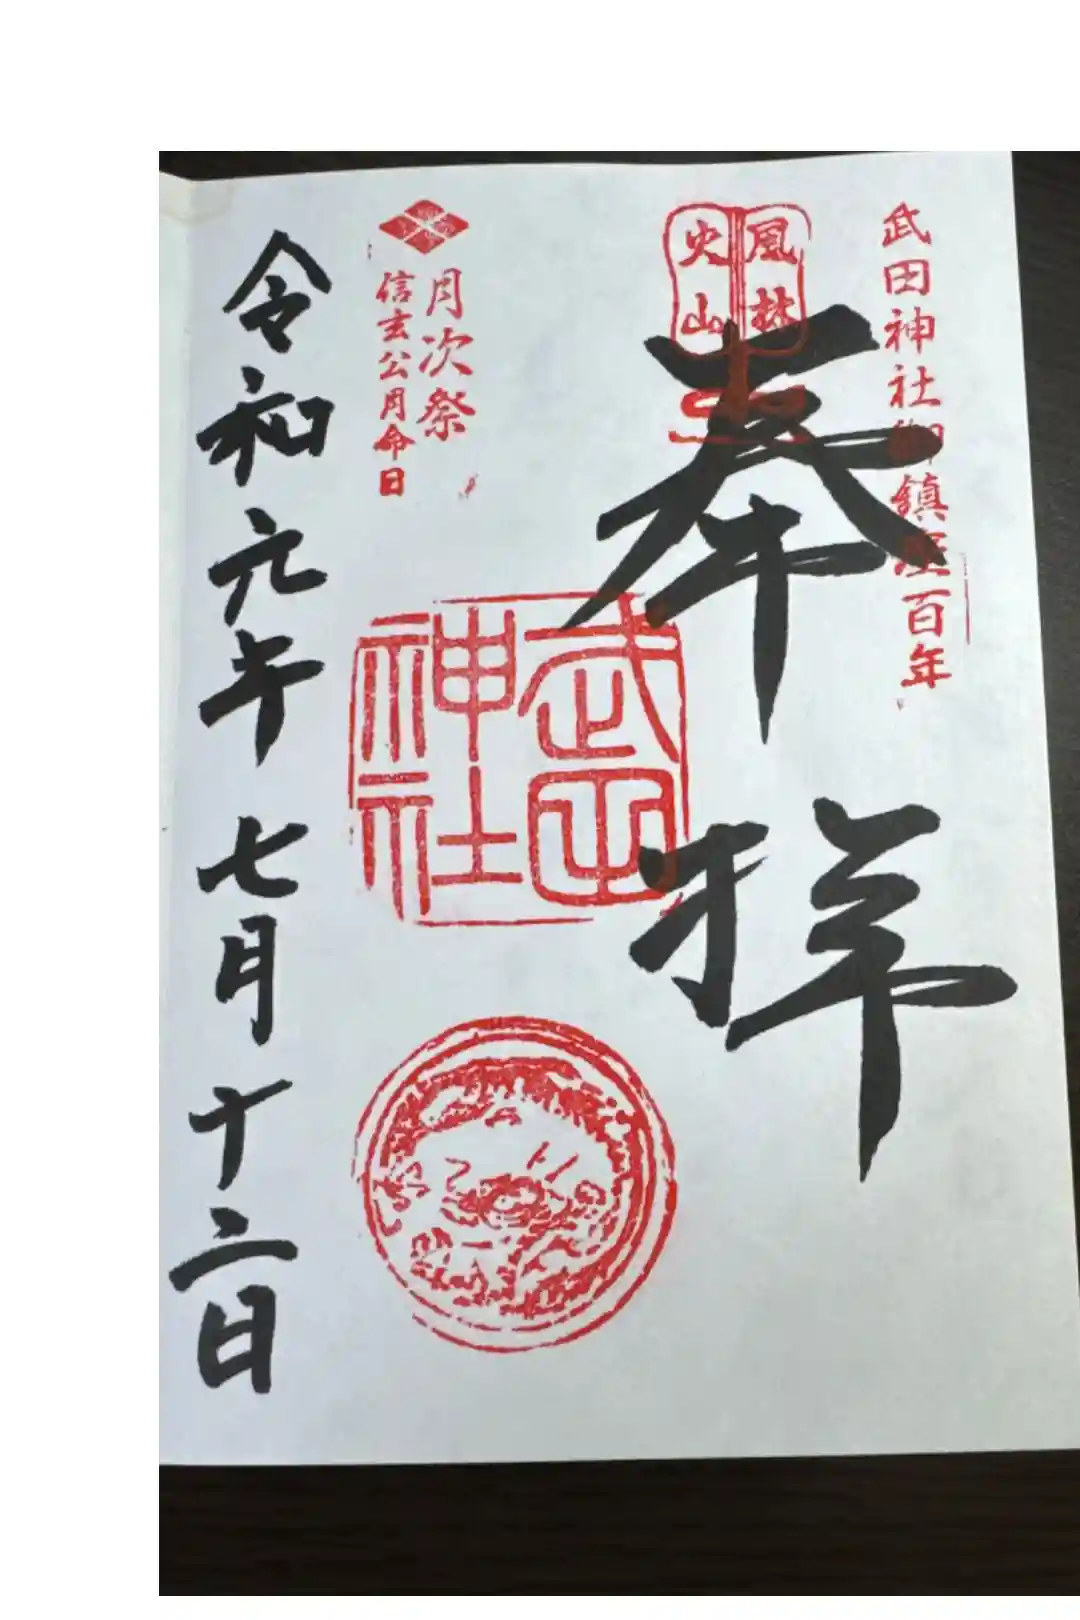 武田神社御鎮座百年
風林
火山
奉拝
武田
神社
月次祭
信玄公月命日
令和元年 七月十二日